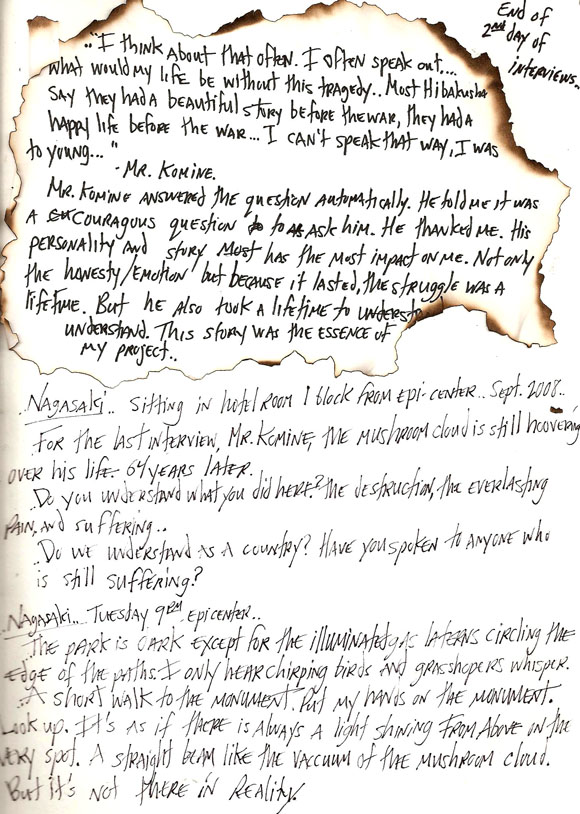 End of
2nd day of
interviews..
.."I think about that often. I often speak out,...
what would my life be without this tragedy.. Most Hibakusha
say they had a beautiful story before the war, they had a
happy life before the war... I can't speak that way, I was
to young..."
- Mr. Komine.
Mr. Komine answered the question automatically. He told me it was
a couragous question to ask him. He thanked me. His
personality and story Most has the most impact on me. Not only
the honesty/emotion but because it lasted, the struggle was a
lifetime. But he also took a lifetime to underst
understand. This story was the essence of
my project..
..Nagasaki.. Sitting in hotel room 1 block from epi-center.. Sept. 2008..
For the last interview, Mr. Komine, the mushroom cloud is still hoovering
over his life. 64 years later.
Do you understand what you did here? The destruction, the everlasting
pain, and suffering..
Do we understand as a country? Have you spoken to anyone who
is still suffering?
..Nagasaki... Tuesday 9PM epicenter..
The park is dark except for the illuminated gas laterns circling the
edge of the paths. I only hear chirping birds and grasshopers whisper.
..A short walk to the monument. Put my hands on the monument.
Look up. It's as if there is always a light shining from above on the
very spot. A straight beam like the vacuum of the mushroom cloud.
But it's not there in reality.